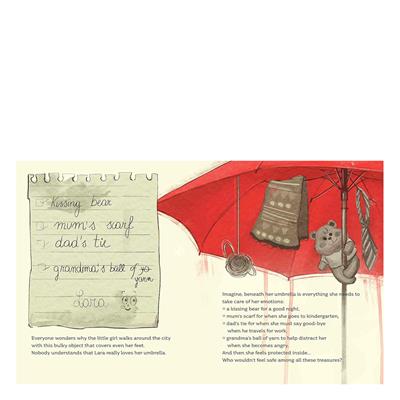 kissing bear
mum's scarf
dad's tie
grandma's ball of yo
yarn
Lara
Everyone wonders why the little girl walks around the city
with this bulky object that covers even her feet.
Nobody understands that Lara really loves her umbrella.
Imagine, beneath her umbrella is everything she needs to
take care of her emotions:
a kissing bear for a good night,
mum's scarf for when she goes to kindergarten,
dad's tie for when she must say good-bye
when he travels for work.
grandma's ball of yarn to help distract her
when she becomes angry.
And then she feels protected inside...
Who wouldn't feel safe among all these treasures?